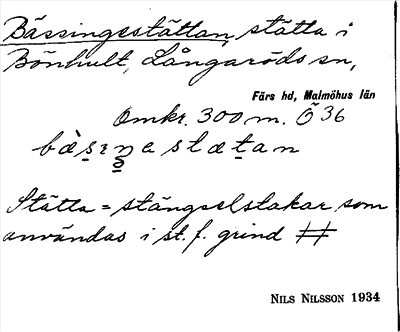 Bässingsstättan, stätta i
Bönhult, Långaröds sn,
Färs hd, Malmöhus län
Omkr. 300 m. Ö 36
Stätta = stängselstakar, som
användas i st. f. grind #
NILS NILSSON 1934